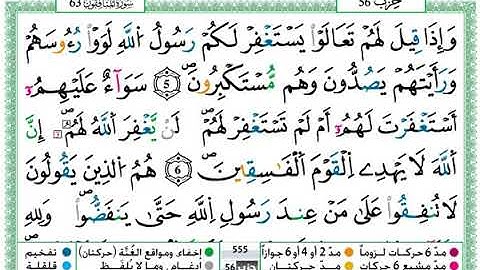 سُورَةُ المُنَافِقُون 63
حِزْب 56
وَإِذَا قِيلَ لَهُمْ تَعَالَوْا۟ يَسْتَغْفِرْ لَكُمْ رَسُولُ اُ۬للَّهِ لَوَوْا۟ رُءُوسَهُمْ
وَرَأَيْتَهُمْ يَصُدُّونَ وَهُم مُّسْتَكْبِرُونَۖ 5 سَوَآءٌ عَلَيْهِمُۥٓ
أَسْتَغْفَرْتَ لَهُمُۥٓ أَمْ لَمْ تَسْتَغْفِرْ لَهُمْۖ لَنْ يَّغْفِرَ اَ۬للَّهُ لَهُمُۥٓۖ إِنَّ
اَ۬للَّهَ لَا يَهْدِے اِ۬لْقَوْمَ اَ۬لْفَٰسِقِينَۖ 6 هُمُ اُ۬لذِينَ يَقُولُونَ
لَا تُنفِقُوا۟ عَلَىٰ مَنْ عِندَ رَسُولِ اِ۬للَّهِ حَتَّىٰ يَنفَضُّوا۟ۖ وَلِلهِ
مدّ 6 حركات لزوماً مدّ 2 أو 4 أو 6 جوازاً 555 إخفاء، ومواقع الغُنَّة (حركتان) تفخيم
مدّ مشبع 6 حركات مدّ حركتان 56 إدغام، وما لا يُلفَظ قلقلة